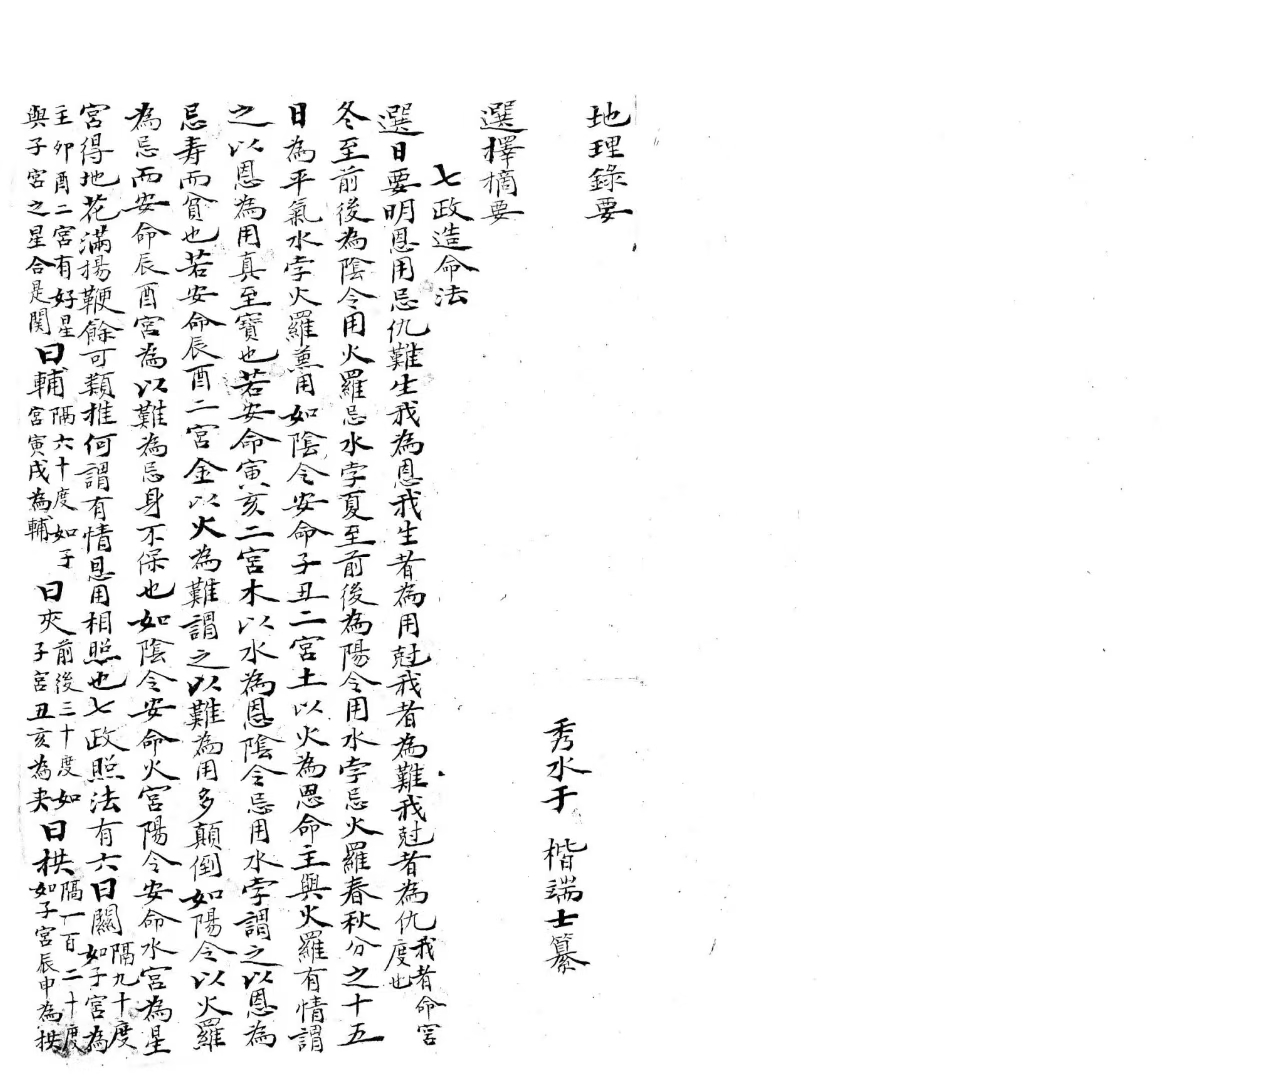 地理錄要
秀水于 楷端士纂
選擇摘要
七政造命法
選日要明恩用忌仇難生我為恩我生者為用尅我者為難我尅者為仇我者命宮度也
冬至前後為陰令用火羅忌水孛夏至前後為陽令用水孛忌火羅春秋分之十五
日為平氣水孛火羅薰用如陰令安命子丑二宮土以火為恩命主與火羅有情謂
之以恩為用真至寶也若安命寅亥二宮木以水為恩陰令忌用水孛謂之以恩為
忌寿而貧也若安命辰酉二宮金以火為難謂之以難為用多顛倒如陽令以火羅
為忌而安命辰酉宮為以難為忌身不保也如陰令安命火宮陽令安命水宮為星
宮得地花滿揚鞭餘可類推何謂有情恩用相照也七政照法有六曰關隔九十度如子宮為
主卯酉二宮有好星與子宮之星合是関曰輔隔六十度如子宮寅戌為輔曰夾前後三十度如子宮丑亥為夾曰拱隔一百二十度如子宮辰申為拱